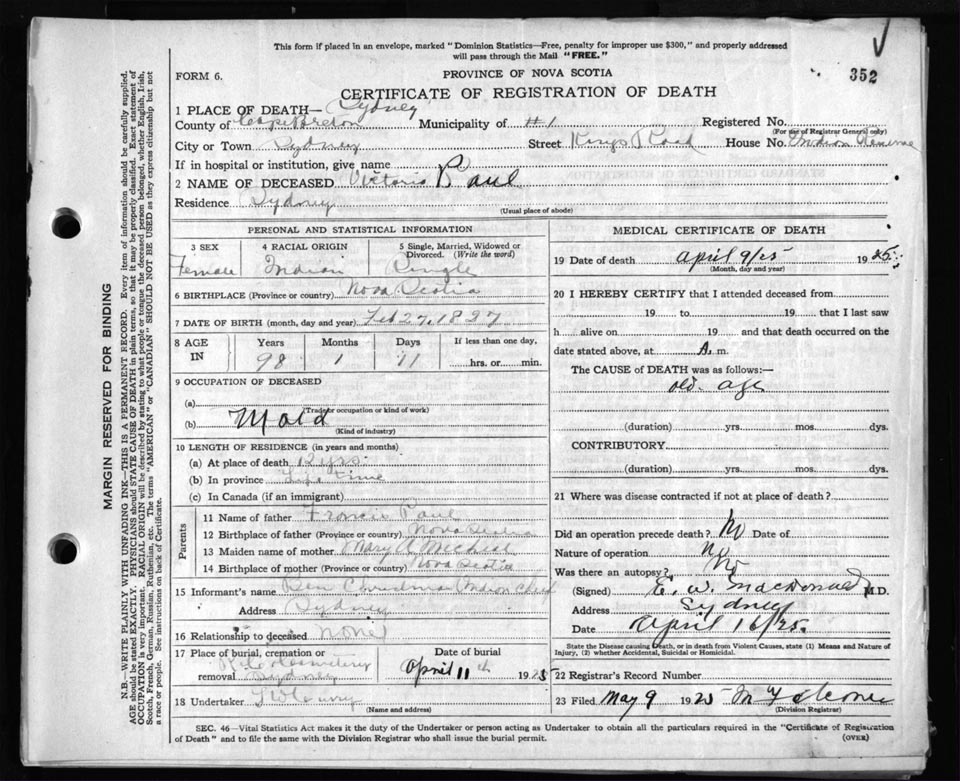 This form if placed in an envelope, marked "Dominion Statistics—Free, penalty for improper use $300," and properly addressed
will pass through the Mail "FREE."
FORM 6.
PROVINCE OF NOVA SCOTIA
352
CERTIFICATE OF REGISTRATION OF DEATH
1 PLACE OF DEATH— Sydney
County of Cape Breton Municipality of #1 Registered No.
(For use of Registrar General only)
City or Town Sydney Street Kings Road House No. Indian Reserve
If in hospital or institution, give name
2 NAME OF DECEASED Victoria Paul
Residence Sydney
(Usual place of abode)
PERSONAL AND STATISTICAL INFORMATION
3 SEX 4 RACIAL ORIGIN 5 Single, Married, Widowed or Divorced. (Write the word)
Female Indian Single
6 BIRTHPLACE (Province or country) Nova Scotia
7 DATE OF BIRTH (month, day and year) Feb 27, 1827
8 AGE IN Years Months Days If less than one day,
98 1 11 hrs. or min.
9 OCCUPATION OF DECEASED
(a)
(Trade or occupation or kind of work)
(b) Maid
(Kind of industry)
10 LENGTH OF RESIDENCE (in years and months)
(a) At place of death 12 yrs.
(b) In province Life time
(c) In Canada (if an immigrant)
Parents
11 Name of father Francis Paul
12 Birthplace of father (Province or country) Nova Scotia
13 Maiden name of mother Mary A Micheal
14 Birthplace of mother (Province or country) Nova Scotia
15 Informant's name Ben Indian Chief
Address Sydney
16 Relationship to deceased none
17 Place of burial, cremation or removal Cemetery Sydney
Date of burial
April 11th 1925
18 Undertaker
(Name and address)
MEDICAL CERTIFICATE OF DEATH
19 Date of death April 9/25 1925
(Month, day and year)
20 I HEREBY CERTIFY that I attended deceased from
19 to 19 that I last saw
h alive on 19 and that death occurred on the
date stated above, at A. m.
The CAUSE of DEATH was as follows:—
old age
(duration) yrs. mos. dys.
CONTRIBUTORY
(duration) yrs. mos. dys.
21 Where was disease contracted if not at place of death?
Did an operation precede death? No Date of
Nature of operation no
Was there an autopsy? No
(Signed) E. W. MacDonald M.D.
Address Sydney
Date April 16/25.
State the Disease causing Death, or in death from Violent Causes, state (1) Means and Nature of
Injury, (2) whether Accidental, Suicidal or Homicidal.
22 Registrar's Record Number
23 Filed May 9 1925
(Division Registrar)
SEC. 46—Vital Statistics Act makes it the duty of the Undertaker or person acting as Undertaker to obtain all the particulars required in the "Certificate of Registration
of Death" and to file the same with the Division Registrar who shall issue the burial permit.
(OVER)
MARGIN RESERVED FOR BINDING
N.B.—WRITE PLAINLY WITH UNFADING INK—THIS IS A PERMANENT RECORD. Every item of information should be carefully supplied.
AGE should be stated EXACTLY. PHYSICIANS should STATE CAUSE OF DEATH in plain terms, so that it may be properly classified. Exact statement of
OCCUPATION is very important. RACIAL ORIGIN will be described by stating to what people or tongue the deceased person belonged, whether English, Irish,
Scotch, French, German, Russian, Ruthenian, etc. The terms "AMERICAN" or "CANADIAN" SHOULD NOT BE USED as they express citizenship but not
a race or people. See instructions on back of Certificate.